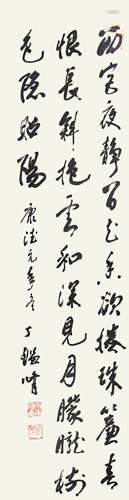 西宮夜靜百花香欲捲珠簾春
恨長斜抱雲和深見月朦朧樹
色隱昭陽 康德元年冬 丁鑑脩